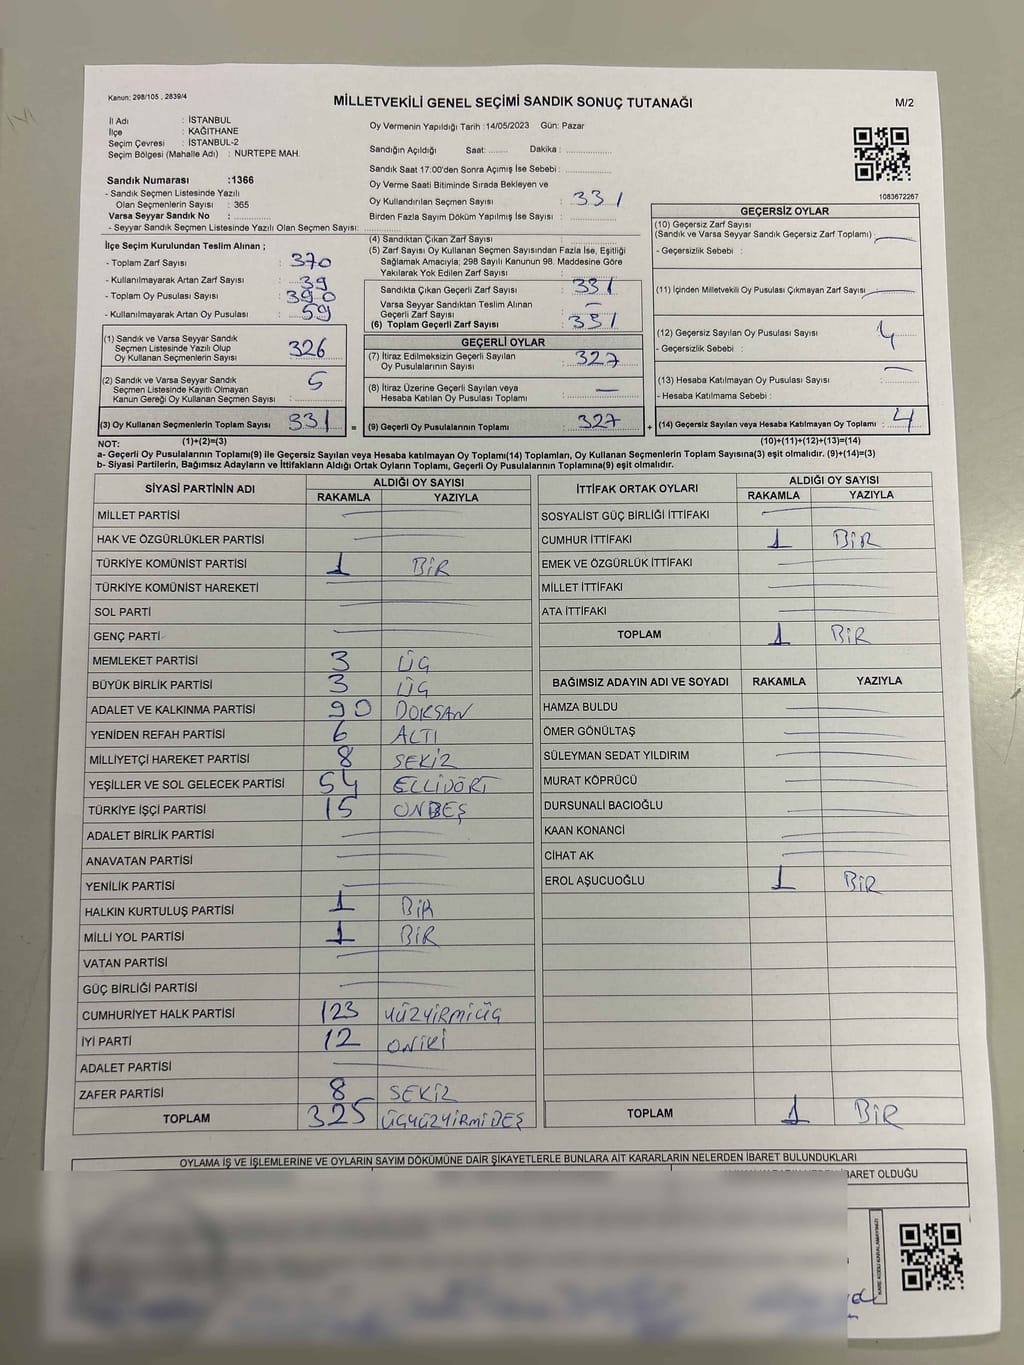 Kanun: 298/105 , 2839/4
MİLLETVEKİLİ GENEL SEÇİMİ SANDIK SONUÇ TUTANAĞI
M/2
İl Adı : İSTANBUL
İlçe : KAĞITHANE
Seçim Çevresi : İSTANBUL-2
Seçim Bölgesi (Mahalle Adı) : NURTEPE MAH.
Oy Vermenin Yapıldığı Tarih :14/05/2023 Gün: Pazar
Sandığın Açıldığı Saat: ........ Dakika : ..................
Sandık Saat 17:00'den Sonra Açımış İse Sebebi : ..................
Oy Verme Saati Bitiminde Sırada Bekleyen ve
Oy Kullandırılan Seçmen Sayısı : 331
Birden Fazla Sayım Döküm Yapılmış İse Sayısı : ..................
1083672267
Sandık Numarası :1366
- Sandık Seçmen Listesinde Yazılı
Olan Seçmenlerin Sayısı : 365
Varsa Seyyar Sandık No : ..................
- Seyyar Sandık Seçmen Listesinde Yazılı Olan Seçmen Sayısı: ..................
İlçe Seçim Kurulundan Teslim Alınan ;
- Toplam Zarf Sayısı : 370
- Kullanılmayarak Artan Zarf Sayısı : 39
- Toplam Oy Pusulası Sayısı : 390
- Kullanılmayarak Artan Oy Pusulası : 59
(1) Sandık ve Varsa Seyyar Sandık
Seçmen Listesinde Yazılı Olup
Oy Kullanan Seçmenlerin Sayısı : 326
(2) Sandık ve Varsa Seyyar Sandık
Seçmen Listesinde Kayıtlı Olmayan
Kanun Gereği Oy Kullanan Seçmen Sayısı : 5
(3) Oy Kullanan Seçmenlerin Toplam Sayısı : 331 =
(4) Sandıktan Çıkan Zarf Sayısı : ..................
(5) Zarf Sayısı Oy Kullanan Seçmen Sayısından Fazla İse, Eşitliği
Sağlamak Amacıyla; 298 Sayılı Kanunun 98. Maddesine Göre
Yakılarak Yok Edilen Zarf Sayısı : ..................
Sandıkta Çıkan Geçerli Zarf Sayısı : 331
Varsa Seyyar Sandıktan Teslim Alınan
Geçerli Zarf Sayısı : –
(6) Toplam Geçerli Zarf Sayısı : 331
GEÇERLİ OYLAR
(7) İtiraz Edilmeksizin Geçerli Sayılan
Oy Pusulalarının Sayısı : 327
(8) İtiraz Üzerine Geçerli Sayılan veya
Hesaba Katılan Oy Pusulası Toplamı : —
(9) Geçerli Oy Pusulalarının Toplamı : 327 +
GEÇERSİZ OYLAR
(10) Geçersiz Zarf Sayısı
(Sandık ve Varsa Seyyar Sandık Geçersiz Zarf Toplamı) : —
- Geçersizlik Sebebi :
(11) İçinden Milletvekili Oy Pusulası Çıkmayan Zarf Sayısı : —
(12) Geçersiz Sayılan Oy Pusulası Sayısı : 4
- Geçersizlik Sebebi :
(13) Hesaba Katılmayan Oy Pusulası Sayısı : —
- Hesaba Katılmama Sebebi :
(14) Geçersiz Sayılan veya Hesaba Katılmayan Oy Toplamı : 4
NOT: (1)+(2)=(3) (10)+(11)+(12)+(13)=(14)
a- Geçerli Oy Pusulalarının Toplamı(9) ile Geçersiz Sayılan veya Hesaba katılmayan Oy Toplamı(14) Toplamları, Oy Kullanan Seçmenlerin Toplam Sayısına(3) eşit olmalıdır. (9)+(14)=(3)
b- Siyasi Partilerin, Bağımsız Adayların ve İttifakların Aldığı Ortak Oyların Toplamı, Geçerli Oy Pusulalarının Toplamına(9) eşit olmalıdır.
SİYASİ PARTİNİN ADI ALDIĞI OY SAYISI
RAKAMLA YAZIYLA
MİLLET PARTİSİ
HAK VE ÖZGÜRLÜKLER PARTİSİ
TÜRKİYE KOMÜNİST PARTİSİ 1 BİR
TÜRKİYE KOMÜNİST HAREKETİ
SOL PARTİ
GENÇ PARTİ
MEMLEKET PARTİSİ 3 ÜÇ
BÜYÜK BİRLİK PARTİSİ 3 ÜÇ
ADALET VE KALKINMA PARTİSİ 90 DOKSAN
YENİDEN REFAH PARTİSİ 6 ALTI
MİLLİYETÇİ HAREKET PARTİSİ 8 SEKİZ
YEŞİLLER VE SOL GELECEK PARTİSİ 54 ELLİDÖRT
TÜRKİYE İŞÇİ PARTİSİ 15 ONBEŞ
ADALET BİRLİK PARTİSİ
ANAVATAN PARTİSİ
YENİLİK PARTİSİ
HALKIN KURTULUŞ PARTİSİ 1 BİR
MİLLİ YOL PARTİSİ 1 BİR
VATAN PARTİSİ
GÜÇ BİRLİĞİ PARTİSİ
CUMHURİYET HALK PARTİSİ 123 YÜZYİRMİÜÇ
İYİ PARTİ 12 ONİKİ
ADALET PARTİSİ
ZAFER PARTİSİ 8 SEKİZ
TOPLAM 325 ÜÇYÜZYİRMİBEŞ
İTTİFAK ORTAK OYLARI ALDIĞI OY SAYISI
RAKAMLA YAZIYLA
SOSYALİST GÜÇ BİRLİĞİ İTTİFAKI
CUMHUR İTTİFAKI 1 BİR
EMEK VE ÖZGÜRLÜK İTTİFAKI
MİLLET İTTİFAKI
ATA İTTİFAKI
TOPLAM 1 BİR
BAĞIMSIZ ADAYIN ADI VE SOYADI RAKAMLA YAZIYLA
HAMZA BULDU
ÖMER GÖNÜLTAŞ
SÜLEYMAN SEDAT YILDIRIM
MURAT KÖPRÜCÜ
DURSUNALİ BACIOĞLU
KAAN KONANCİ
CİHAT AK
EROL AŞUCUOĞLU 1 BİR
TOPLAM 1 BİR
OYLAMA İŞ VE İŞLEMLERİNE VE OYLARIN SAYIM DÖKÜMÜNE DAİR ŞİKAYETLERLE BUNLARA AİT KARARLARIN NELERDEN İBARET BULUNDUKLARI
BARET OLDUĞU
KARE KODU KARALAMAYINIZ!